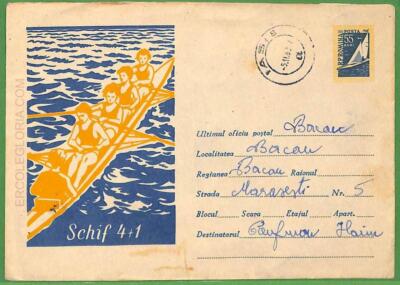 ERCOLEGLORIA.COM
IAȘI
R.P. ROMÎNĂ POSTA
55
BANI
Ultimul oficiu poștal Bacau
Localitatea Bacau
Regiunea Bacau Raionul
Strada Marasesti Nr. 5
Blocul Scara Etajul Apart.
Destinatarul Haim
Schif 4+1